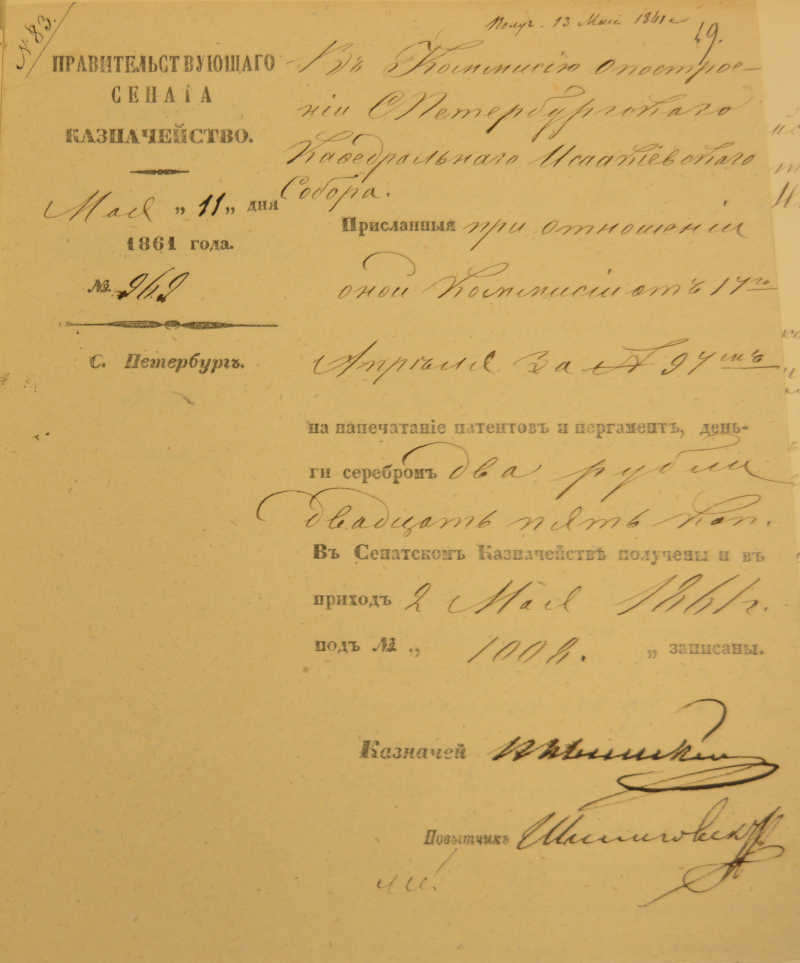 № 83.
Получ. 13 Мая 1861 г.
49.
ПРАВИТЕЛЬСТВУЮЩАГО
СЕНАТА
КАЗНАЧЕЙСТВО.
Мая „ 11 „ дня
1861 года.
№ 262
С. Петербургъ.
Въ Коммисію о построе-
ніи С Петербургскаго
Кафедральнаго Исаакіевскаго
Собора.
Присланныя при отношеніи
оной Коммисіи отъ 17го
Апрѣля за № 97мъ
на напечатаніе патентовъ и пергаментъ, день-
ги серебромъ два рубли
двадцать пять коп.
Въ Сенатскомъ Казначействѣ получены и въ
приходъ 2 Мая 1861 г.
подъ № „ 1002. „ записаны.
Казначей
Повытчикъ